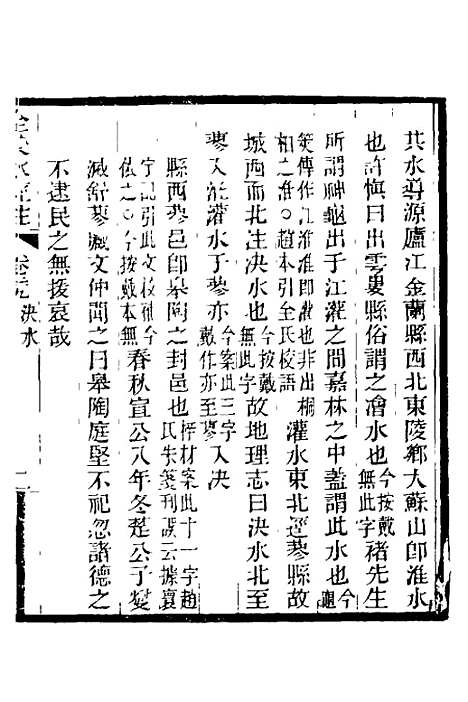 其水導源廬江金蘭縣西北東陵鄉大蘇山卽淮水
也許愼曰出雩婁縣俗謂之澮水也今按戴無此字褚先生
所謂神龜出于江灌之間嘉林之中蓋謂此水也今龜
筴傳作江淮淮卽灌也非出桐相之淮○趙本引全氏校語灌水東北逕蓼縣故
城西而北注決水也今按戴無此字故地理志曰決水北至
蓼入淮灌水于蓼亦今案此三字戴作亦至蓼入決
縣西蓼邑卽皋陶之封邑也梓材案此十一字趙氏朱箋刊誤云據寰
宇記引此文校補今依之○今按戴本無春秋宣公八年冬楚公子燮
滅舒蓼臧文仲聞之曰皋陶庭堅不祀忽諸德之
不逮民之無援哀哉
決水
二